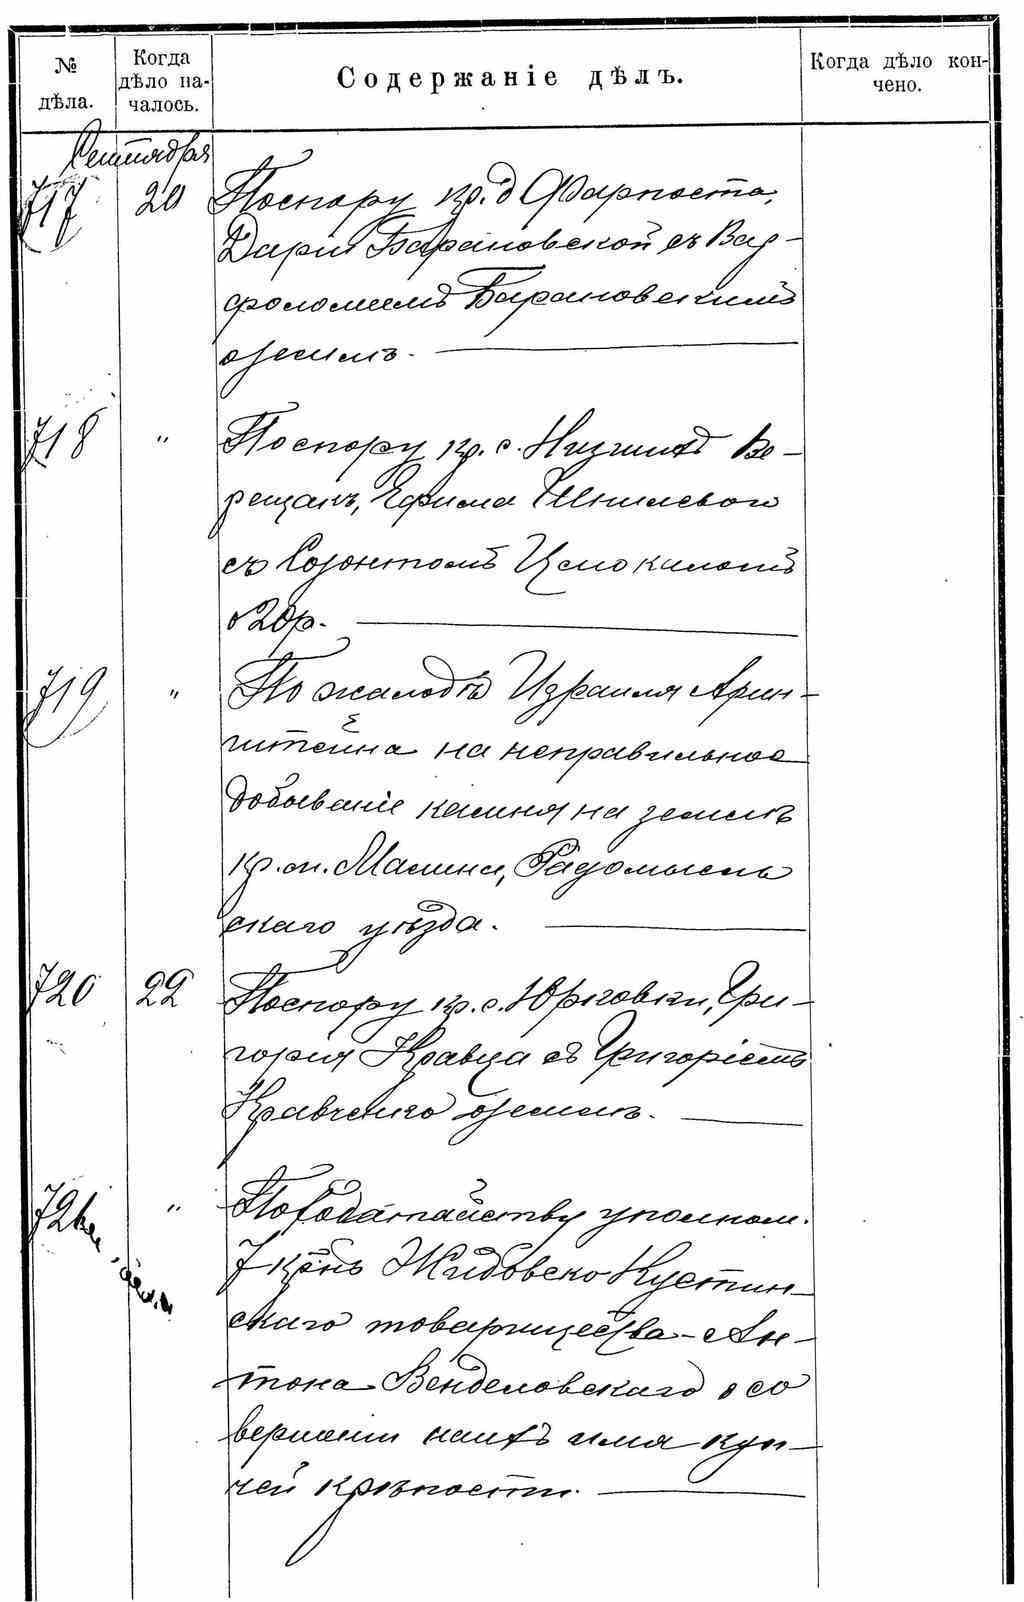 № дѣла.
Когда дѣло началось.
Содержаніе дѣлъ.
Когда дѣло кончено.
Сентября
717 20 По спору кр. д Фарпоста,
Дарiи Барановской съ Вар-
фоломеемъ Барановскимъ
о земли. —
718 " По спору кр. с. Нижнихъ Ве-
рещакъ, Ефима
съ Созонтомъ
о 20 р. —
719 " По жалобѣ Израиля Арин-
штейна на неправильное
добываніе камня на землѣ
кр. м. Малина, Радомысль
скаго уѣзда. —
720 22 По спору кр. с. Юрковки, Гри-
горiя Кравца съ Григоріемъ
Кравченко о земли. —
721 " По ходатайству уполном.
7 кр-нъ Жидовско Кустин-
скаго товарищества - Ан-
тона Венделовскаго о со
вершении на ихъ имя куп-
чей крѣпости. —